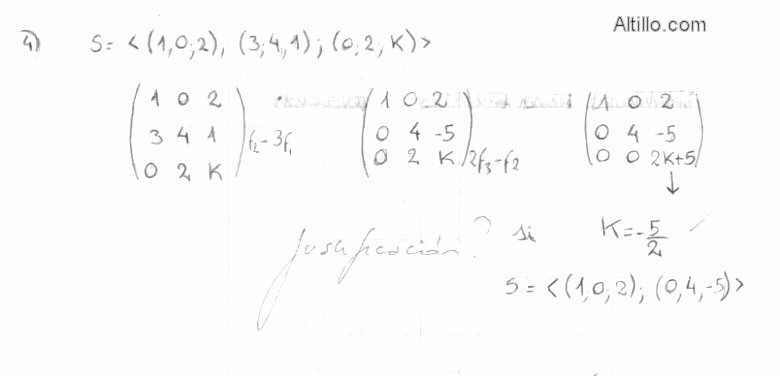 Altillo.com
4) S = < (1,0,2), (3,4,1); (0,2,K) >
1 0 2
3 4 1
0 2 K
f2 - 3f1
1 0 2
0 4 -5
0 2 K
2f3 - f2
1 0 2
0 4 -5
0 0 2K+5
↓
Justificación? si K = -5/2
S = < (1,0,2); (0,4,-5) >